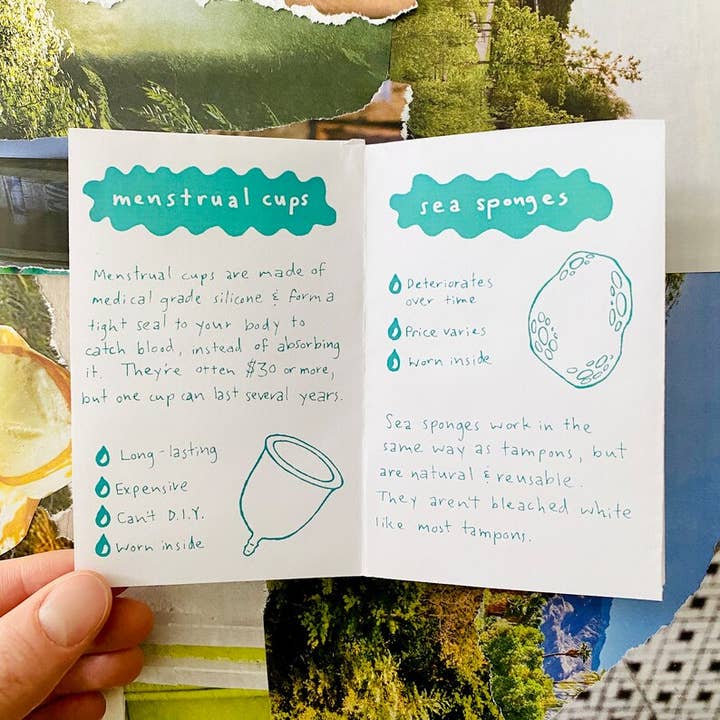 menstrual cups
Menstrual cups are made of
medical grade silicone & form a
tight seal to your body to
catch blood, instead of absorbing
it. They're often $30 or more,
but one cup can last several years.
Long-lasting
Expensive
Can't D.I.Y.
Worn inside
sea sponges
Deteriorates
over time
Price varies
Worn inside
Sea sponges work in the
same way as tampons, but
are natural & reusable.
They aren't bleached white
like most tampons.